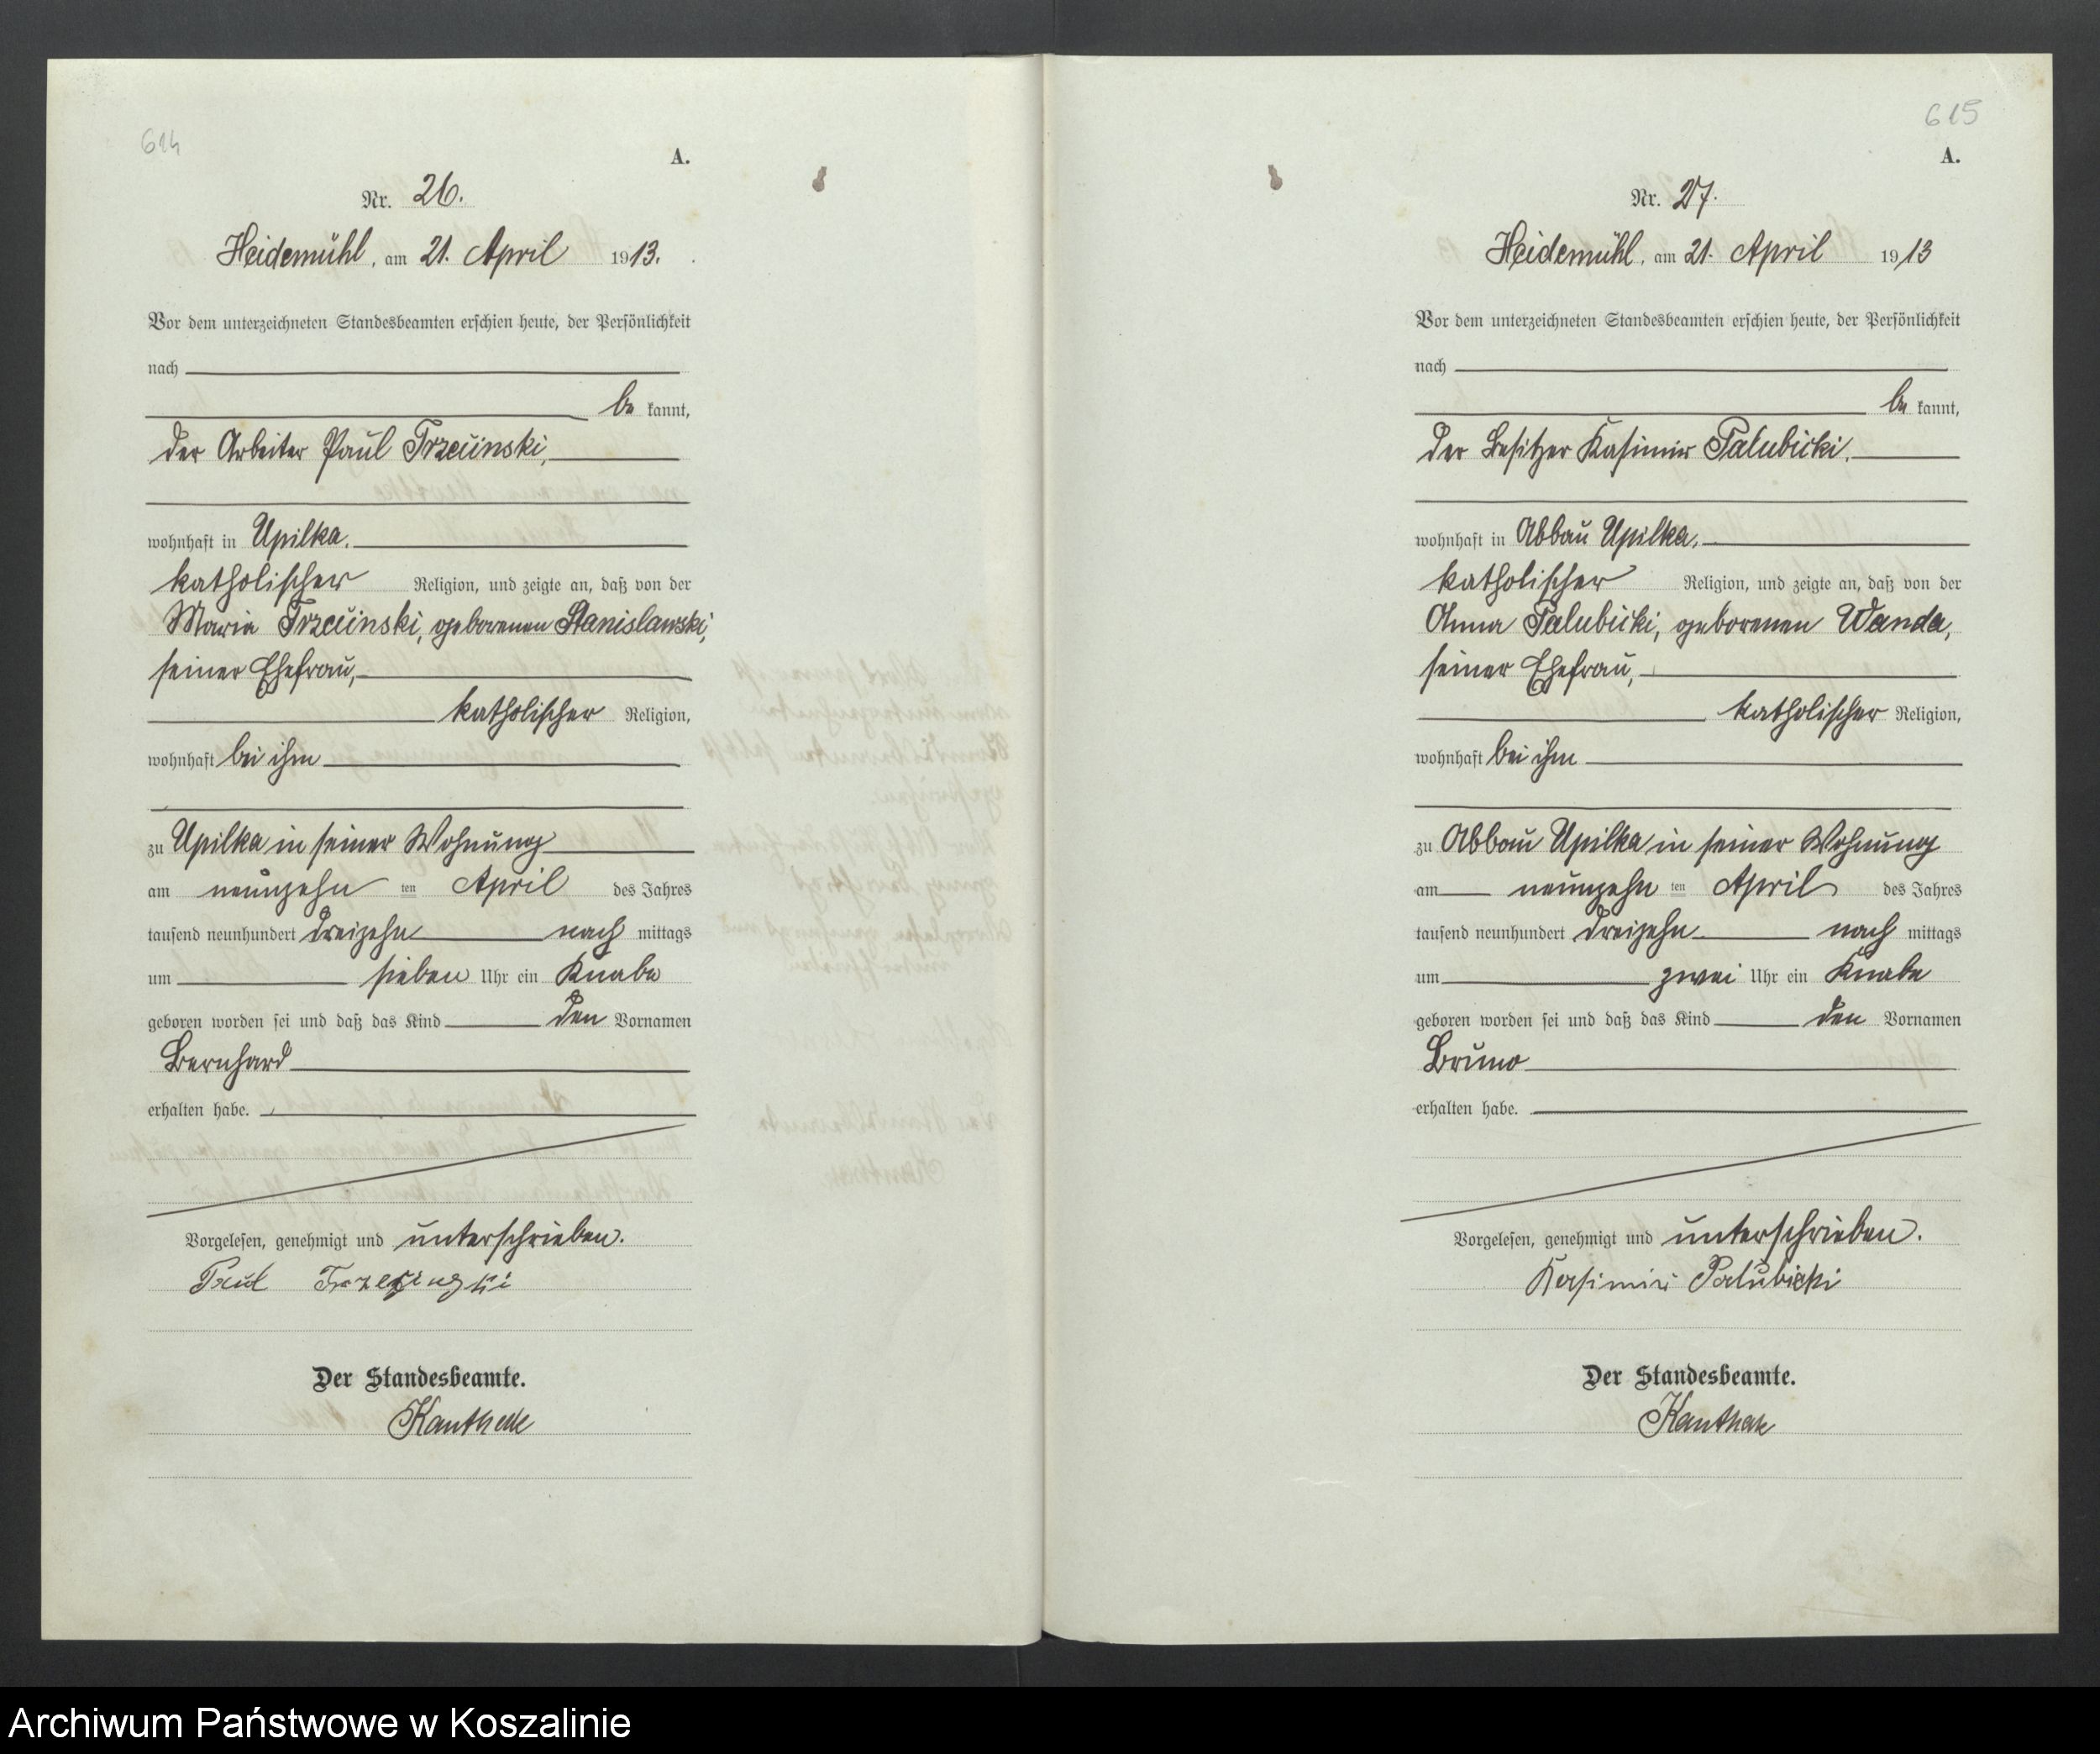 614
A.
Nr. 26.
Heidemühl, am 21. April 1913.
Vor dem unterzeichneten Standesbeamten erschien heute, der Persönlichkeit
nach
be kannt,
der Arbeiter Paul Trzcinski,
wohnhaft in Upilka.
katholischer Religion, und zeigte an, daß von der
Maria Trzcinski, geborenen Stanislawski,
seiner Ehefrau,
katholischer Religion,
wohnhaft bei ihm
zu Upilka in seiner Wohnung
am neunzehn ten April des Jahres
tausend neunhundert dreizehn nach mittags
um sieben Uhr ein Knabe
geboren worden sei und daß das Kind den Vornamen
Bernhard
erhalten habe.
Vorgelesen, genehmigt und unterschrieben.
Paul
Der Standesbeamte.
Kanthak
615
A.
Nr. 27.
Heidemühl, am 21. April 1913
Vor dem unterzeichneten Standesbeamten erschien heute, der Persönlichkeit
nach
be kannt,
der Besitzer Kasimir Palubicki,
wohnhaft in Abbau Upilka,
katholischer Religion, und zeigte an, daß von der
Anna Palubicki, geborenen Wanda,
seiner Ehefrau,
katholischer Religion,
wohnhaft bei ihm
zu Abbau Upilka in seiner Wohnung
am neunzehn ten April des Jahres
tausend neunhundert dreizehn nach mittags
um zwei Uhr ein Knabe
geboren worden sei und daß das Kind den Vornamen
Bruno
erhalten habe.
Vorgelesen, genehmigt und unterschrieben.
Kasimir Palubicki
Der Standesbeamte.
Kanthak
Archiwum Państwowe w Koszalinie